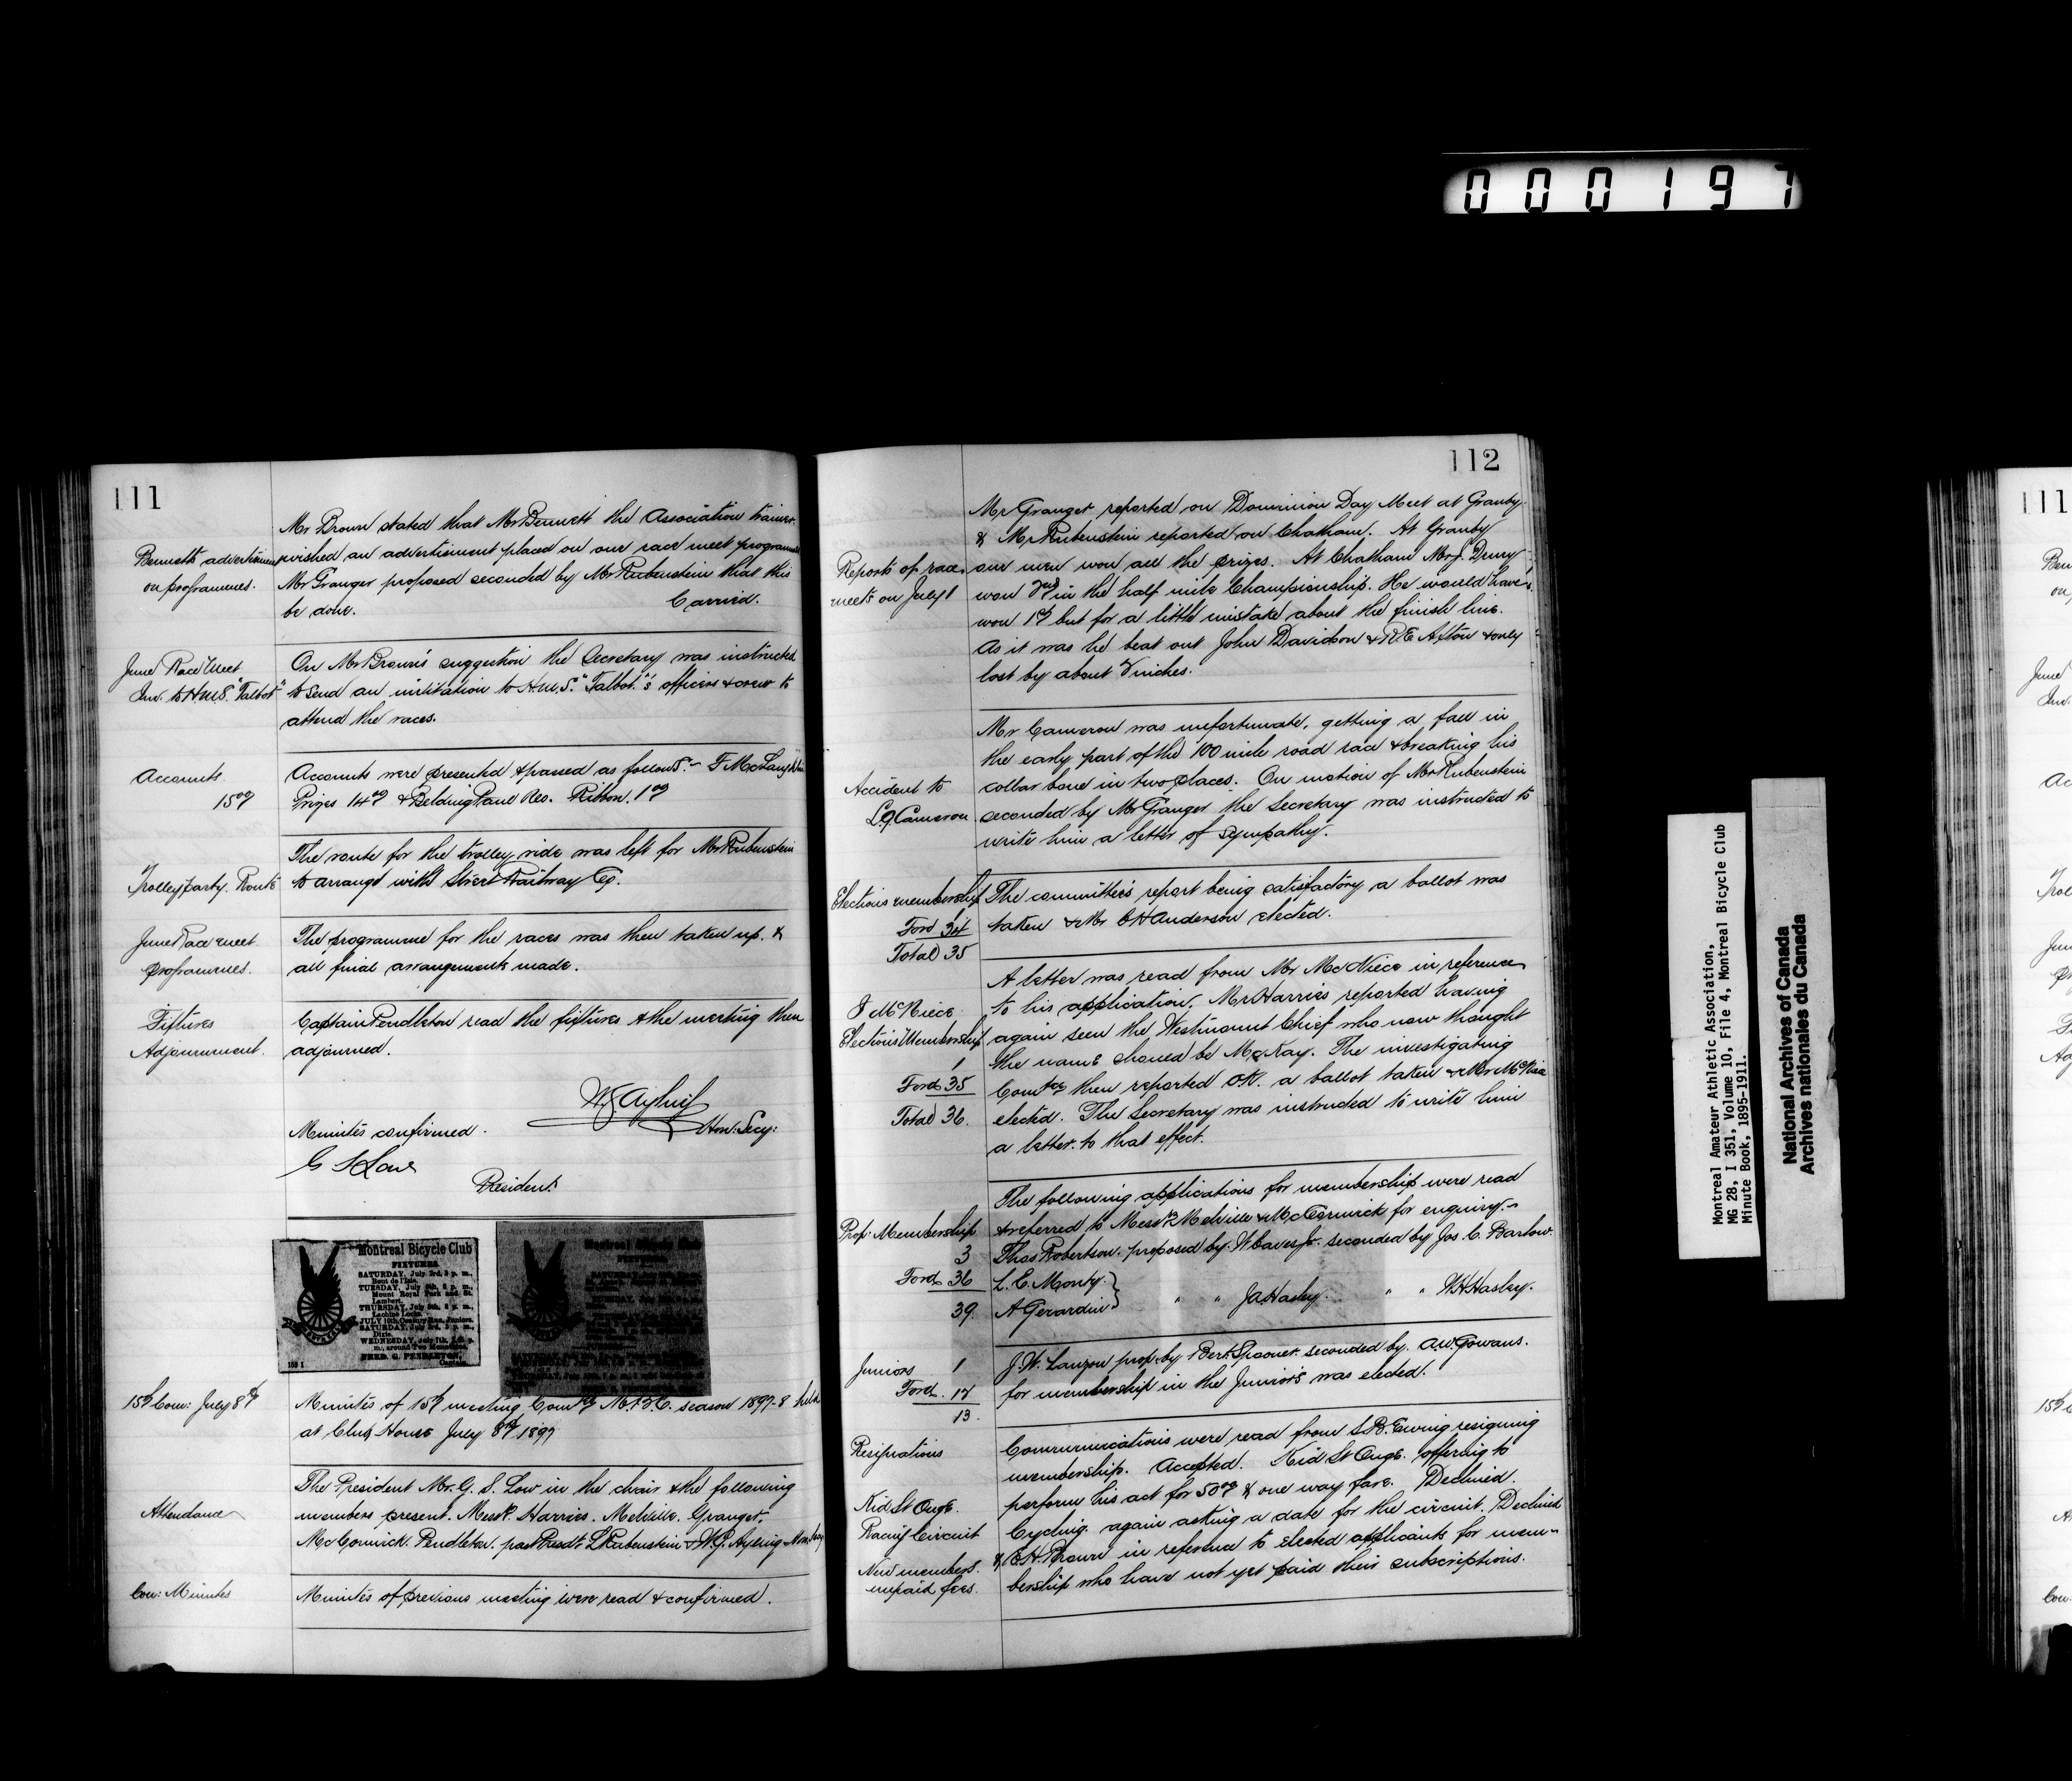 000197
111
Mr Brown stated that Mr Bennett the Association trainer
Bennetts advertisement wished an advertisement placed on our race meet programme
on programmes. Mr Granger proposed seconded by Mr Rubenstein that this
be done. Carried.
June Race Meet On Mr Brown's suggestion the Secretary was instructed
Inv. to H.M.S. "Talbot" to send an invitation to H.M.S. "Talbot"'s officers & crew to
attend the races.
Accounts Accounts were presented & passed as follows:- F McLaughlin
15.00 Prizes 14.00 & Belding Paul Res. Ribbon. 1.00
The route for the trolley ride was left for Mr Rubenstein
Trolley party. Route to arrange with Street Railway Co.
June Race meet The programme for the races was then taken up. &
programmes. all final arrangements made.
Fixtures Captain Pendleton read the fixtures & the meeting then
Adjournment. adjourned.
Hon: Secy:
Minutes confirmed.
G S Low
President
Montreal Bicycle Club
FIXTURES
SATURDAY, July 3rd, 3 p. m.,
Bout de l'Isle.
TUESDAY, July 6th, 8 p. m.,
Mount Royal Park and St.
Lambert.
THURSDAY, July 8th, 8 p. m.,
Lachine Locks.
JULY 10th, Century Run, Juniors.
SATURDAY, July 3rd, 3 p. m.,
Dixie.
WEDNESDAY, July 7th,
m., around Two Mountains.
FRED. G. PENDLETON,
Captain.
15th Com: July 8th Minutes of 15th meeting Comtee M.B.C. season 1897-8 held
at Club House July 8th 1897
The President Mr. G. S. Low in the chair & the following
Attendance members present. Messrs. Harries. Melville. Granger.
McCormick. Pendleton. past Presdt L Rubenstein & W.G. Ayling Hon Secy
Con: Minutes Minutes of previous meeting were read & confirmed.
112
Mr Granger reported on Dominion Day Meet at Granby
& Mr Rubenstein reported on Chatham. At Granby
Reports of race our men won all the prizes. At Chatham Mr J. Drury
meets on July 1 won 2nd in the half mile Championship. He would have
won 1st but for a little mistake about the finish line.
As it was he beat out John Davidson & R.E Afton & only
lost by about inches.
Mr Cameron was unfortunate, getting a fall in
the early part of the 100 mile road race & breaking his
Accident to collar bone in two places. On motion of Mr Rubenstein
L.G. Cameron. seconded by Mr Granger the Secretary was instructed to
write him a letter of sympathy.
Elections membership The committee's report being satisfactory a ballot was
1
Ford 34 taken & Mr C H Anderson elected.
Total 35
A letter was read from Mr McNiece in reference
J McNiece to his application. Mr Harries reported having
Elections Membership again seen the Westmount Chief who now thought
1 the name should be McKay. The investigating
Ford 35 Comtee then reported OK. a ballot taken & Mr McNiece
Total 36. elected. The Secretary was instructed to write him
a letter to that effect.
The following applications for membership were read
Prop: Membership & referred to Messrs Melville & McCormick for enquiry.-
3 Thos Robertson. proposed by. W Eaves Jr. seconded by Jos C. Barlow.
Ford 36 L. C. Monty }
39. A Gerardin } " " J A Hasley. " " W.H. Hasley.
Juniors 1 J. W. Lanzon prop. by Bert. Spooner. seconded by. A.W. Gowans.
Ford. 12 for membership in the Juniors was elected.
13.
Resignations Communications were read from S.B. Ewing resigning
membership. Accepted. Kid St Onge. offering to
Kid St Onge. perform his act for 50.00 & one way fare. Declined.
Racing Circuit Cycling. again asking a date for the circuit. Declined
New members. & E.H. Brown in reference to elected applicants for mem-
unpaid fees. bership who have not yet paid their subscriptions.
Montreal Amateur Athletic Association,
MG 28, I 351, Volume 10, File 4, Montreal Bicycle Club
Minute Book, 1895-1911.
National Archives of Canada
Archives nationales du Canada
111